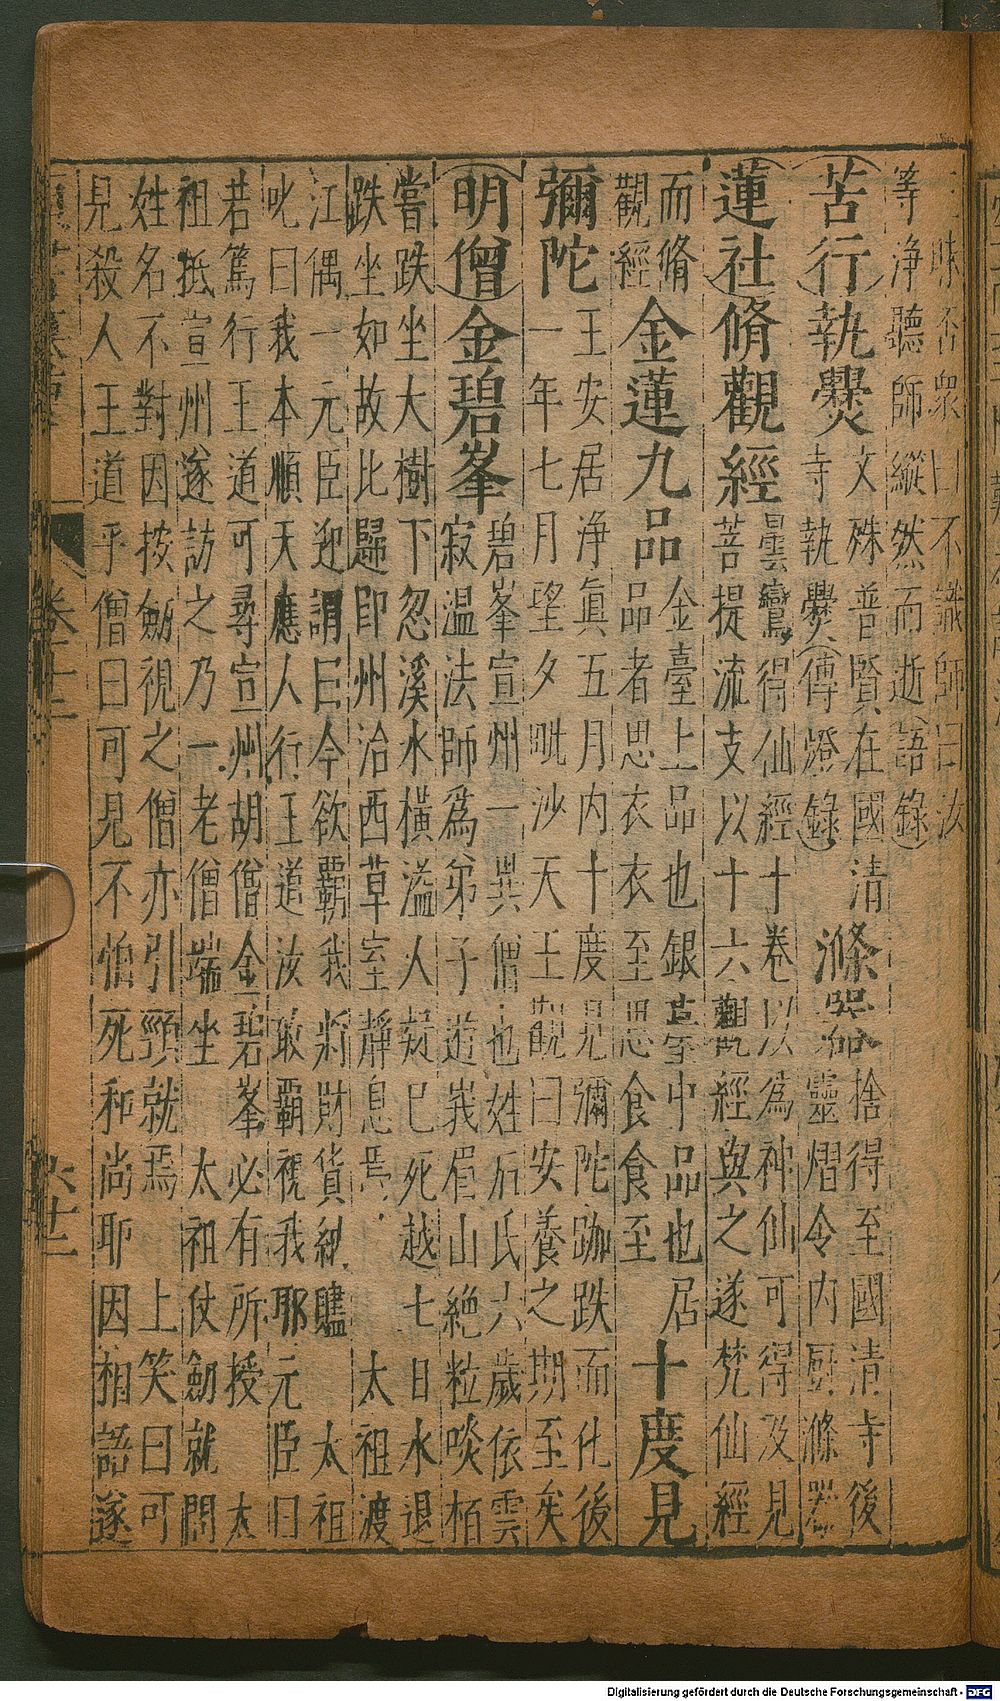 三昧否衆曰不識師曰汝
等淨聽師縱然而逝(語錄)
(苦行)執爨 文殊普賢在國清
寺執爨(傳燈錄)
滌器 捨得至國清寺後
靈熠令內厨滌器
(蓮社)脩觀經 曇鸞得仙經十卷以為神仙可得及見
菩提流支以十六觀經與之遂焚仙經
而脩
觀經
金蓮九品 金臺上品也銀臺中品也居
品者思衣衣至思食食至
十度見
彌陀 王安居淨眞五月内十度見彌陀跏趺而化後
一年七月望夕毗沙天王觀曰安養之期至矣
(明僧)金碧峯 碧峯宣州一異僧也姓石氏六歲依雲
寂温法師爲弟子遊峩眉山絶粒啖栢
嘗趺坐大樹下忽溪水横溢人疑巳死越七日水退
趺坐如故比歸即州治西草室靜息焉 太祖渡
江偶一元臣迎謂曰今欲覇我將財貨細驢 太祖
叱曰我本順天應人行王道汝敢覇視我耶元臣曰
若篤行王道可尋宣州胡僧金碧峯必有所授 太
祖抵宣州遂訪之乃一老僧端坐 太祖仗劒就閗
姓名不對因按劒視之僧亦引頸就焉 上笑曰可
見殺人王道乎僧曰可見不怕死和尚耶因相語遂
卷十三
六十二
Digitalisierung gefördert durch die Deutsche Forschungsgemeinschaft - DFG